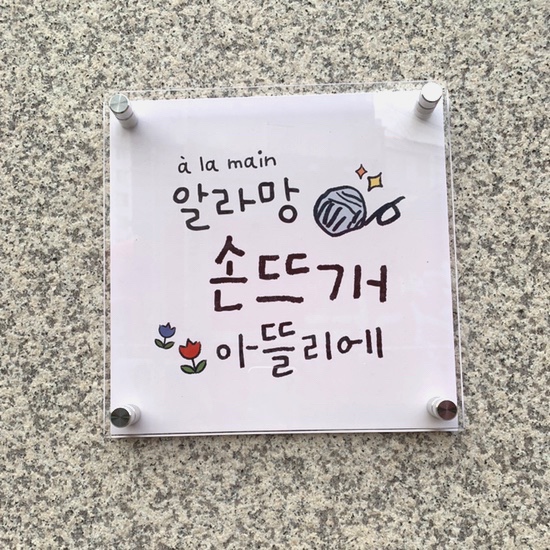 à la main
알라망
손뜨개
아뜰리에